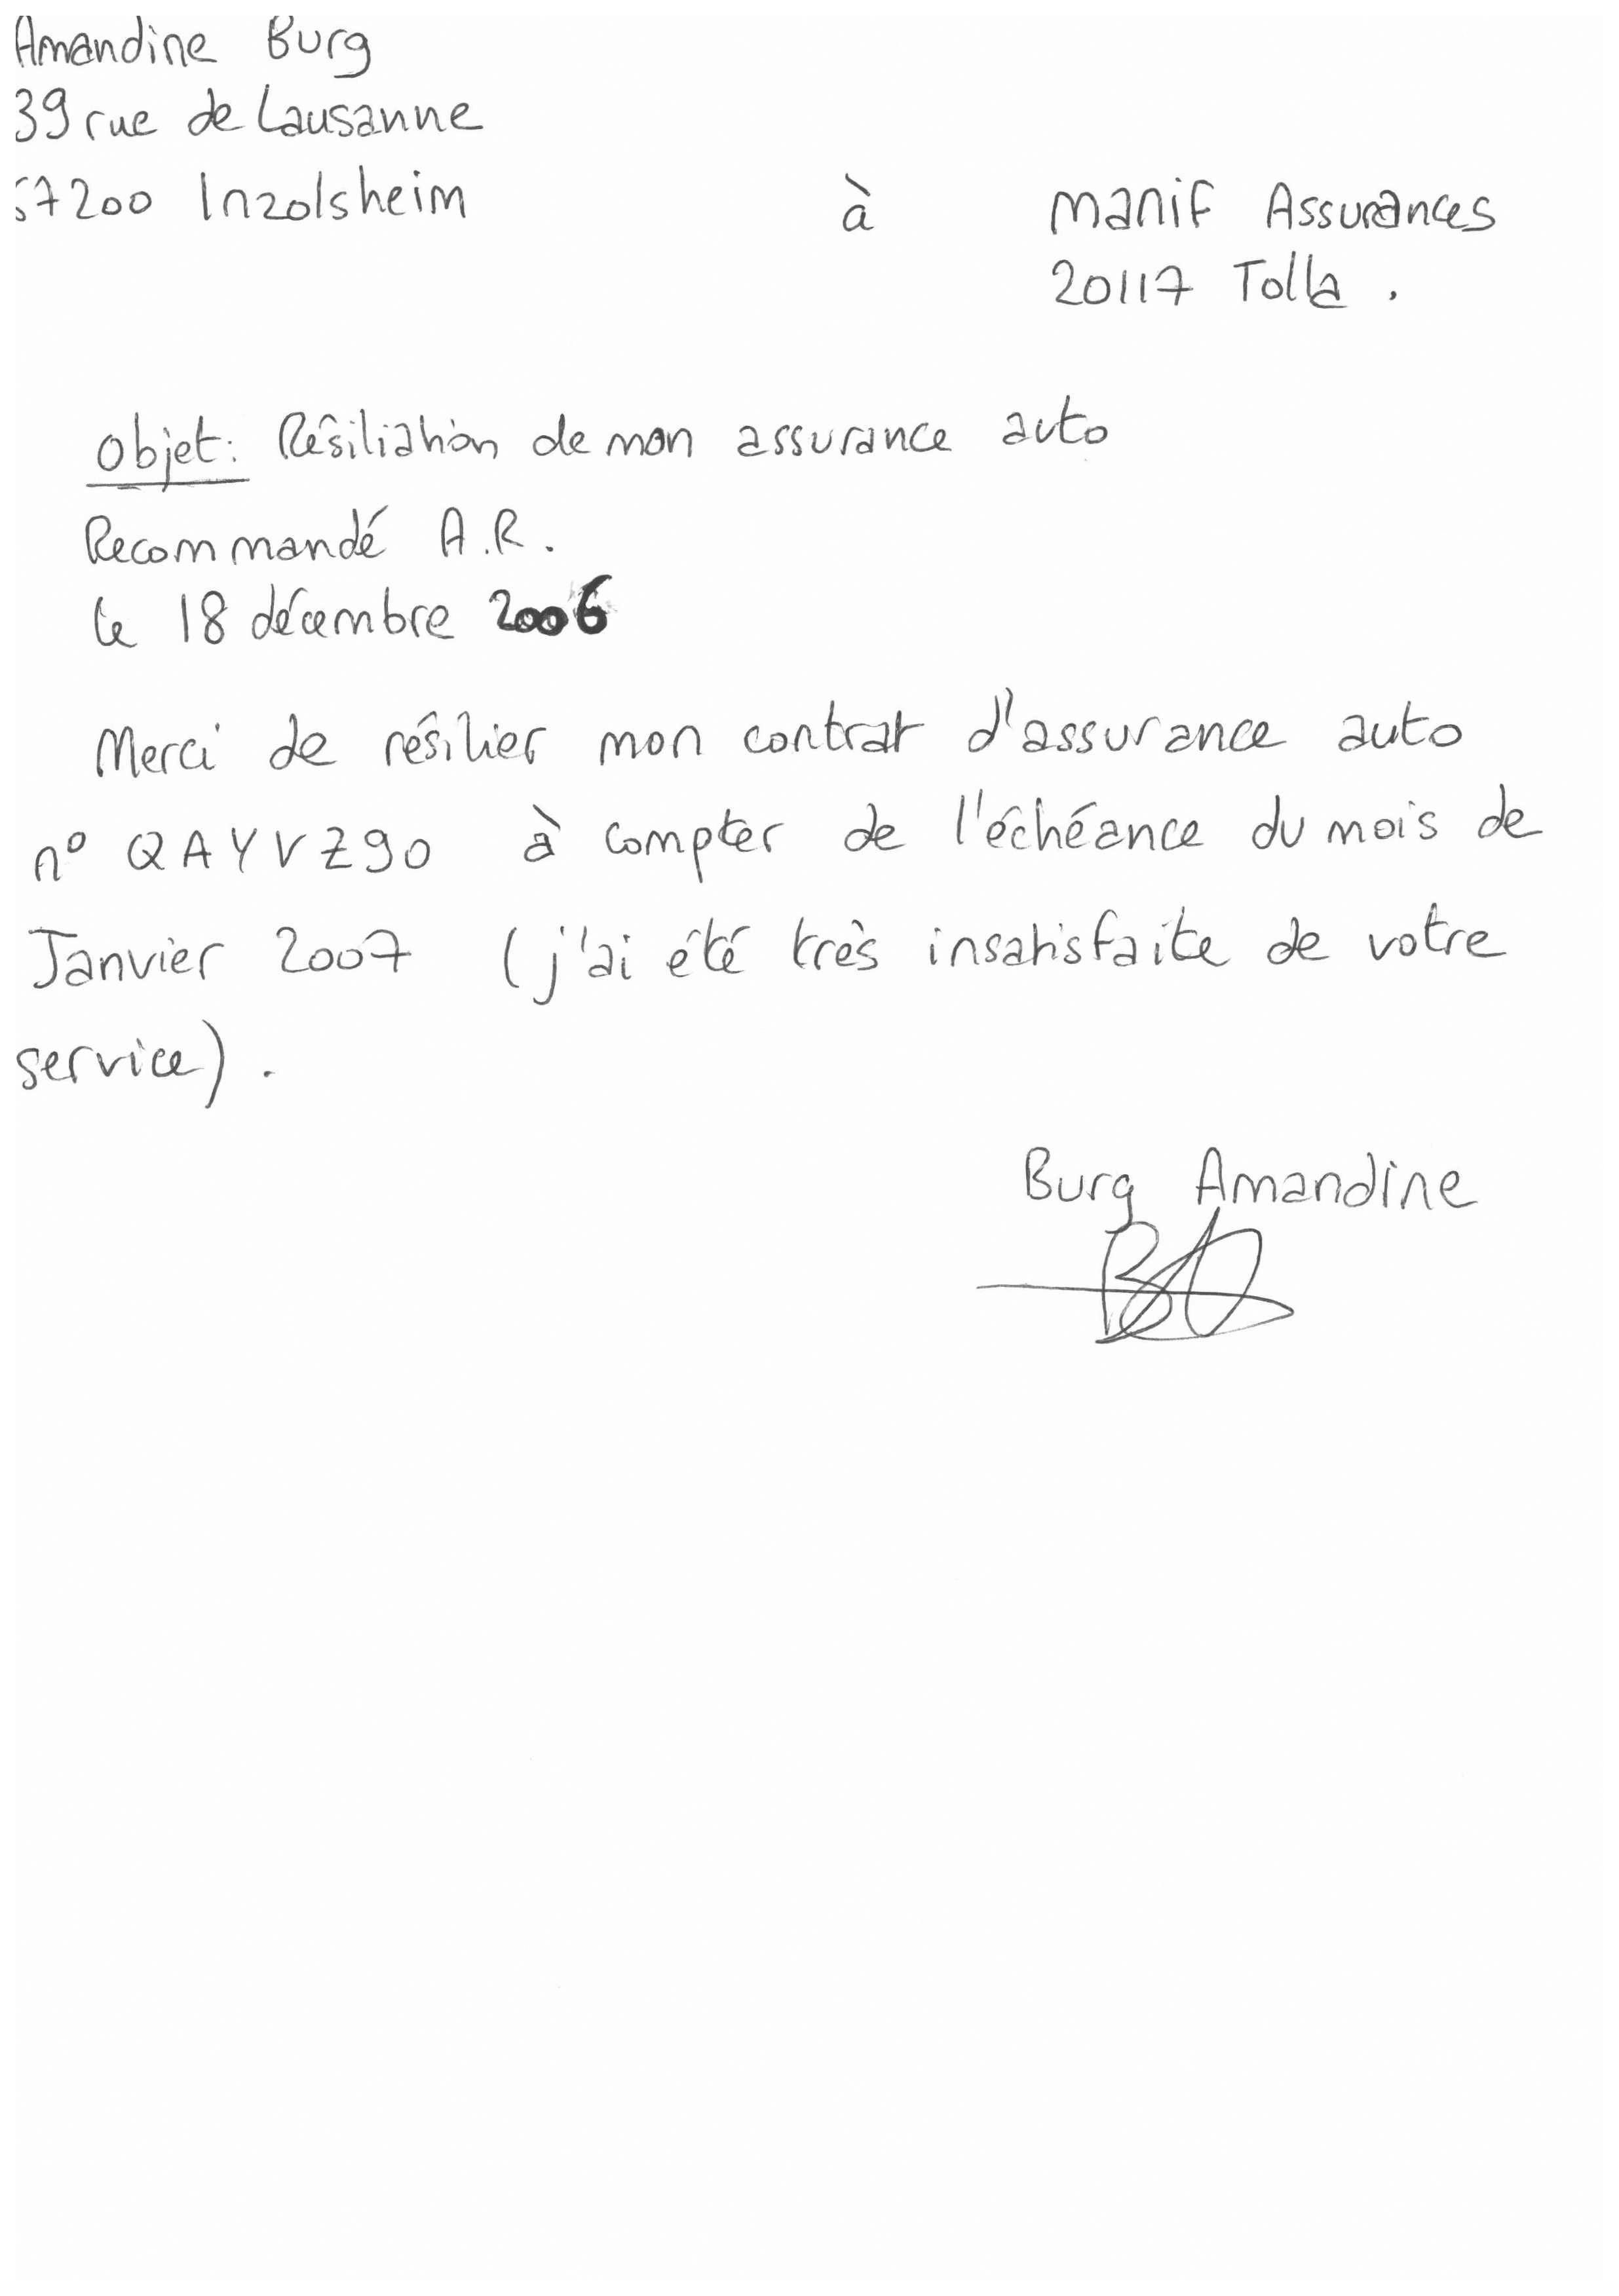 Amandine Burg
39 rue de Lausanne
57200 Inzolsheim
à manif Assurances
20117 Tolla.
Objet: Résiliation de mon assurance auto
Recommandé A.R.
le 18 décembre 2006
Merci de résilier mon contrat d'assurance auto
n° QAYVZ90 à compter de l'échéance du mois de
Janvier 2007 (j'ai été très insatisfaite de votre
service).
Burg Amandine